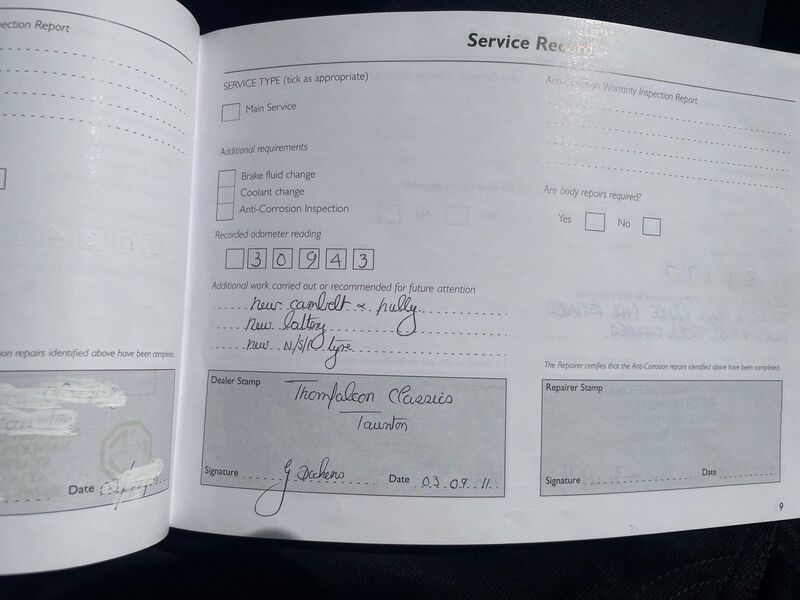 ection Report
on repairs identified above have been completed
Date
Service Record
SERVICE TYPE (tick as appropriate)
Main Service
Additional requirements
Brake fluid change
Coolant change
Anti-Corrosion Inspection
Recorded odometer reading
30943
Additional work carried out or recommended for future attention
new cambelt & pully
new battery
new N/S/R tyre
Dealer Stamp
Classics
Taunton
Signature G Date 03.09.11
Anti-Corrosion Warranty Inspection Report
Are body repairs required?
Yes No
The Repairer certifies that the Anti-Corrosion repairs identified above have been completed
Repairer Stamp
Signature Date
9